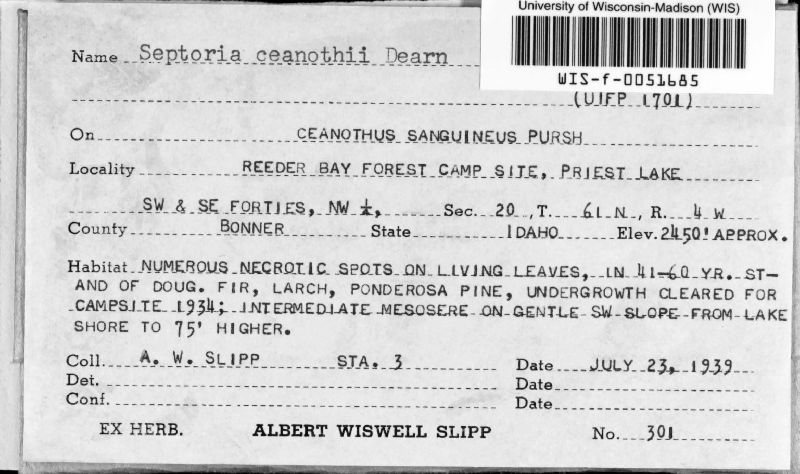 University of Wisconsin-Madison (WIS)
WIS-f-0051685
Name Septoria ceanothii Dearn
(UIFP 1701)
On CEANOTHUS SANGUINEUS PURSH
Locality REEDER BAY FOREST CAMP SITE, PRIEST LAKE
SW & SE FORTIES, NW ¼, Sec. 20, T. 61 N, R. 4 W
County BONNER State IDAHO Elev. 2450' APPROX.
Habitat NUMEROUS NECROTIC SPOTS ON LIVING LEAVES, IN 41-60 YR. ST-
AND OF DOUG. FIR, LARCH, PONDEROSA PINE, UNDERGROWTH CLEARED FOR
CAMPSITE 1934; INTERMEDIATE MESOSERE ON GENTLE SW SLOPE FROM LAKE
SHORE TO 75' HIGHER.
Coll. A. W. SLIPP STA. 3 Date JULY 23, 1939
Det. Date
Conf. Date
EX HERB. ALBERT WISWELL SLIPP No. 301